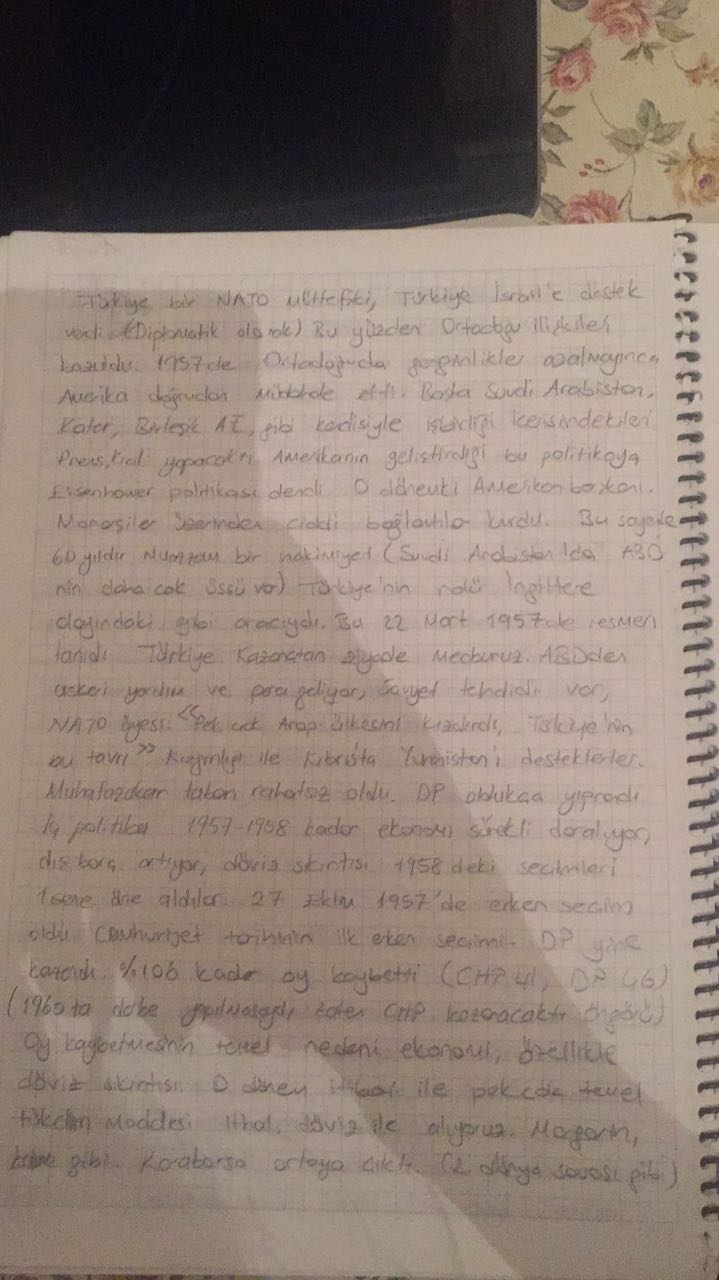 Türkiye bir NATO müttefiki, Türkiye İsrail'e destek
verdi (Diplomatik olarak) Bu yüzden Ortadoğu ilişkileri
bozuldu. 1957'de Ortadoğuda gerginlikler azalmayınca
Amerika doğrudan müdahale etti. Başta Suudi Arabistan,
Katar, Birleşik AE, gibi kendisiyle işbirliği içerisindekileri
Prens, Kral yapacaktı Amerikanın geliştirdiği bu politikaya
Eisenhower politikası dendi O dönemki Amerikan başkanı.
Monarşiler üzerinden ciddi bağlantılar kurdu. Bu sayede
60 yıldır muazzam bir hakimiyet (Suudi Arabistan'da ABD
nin daha çok üssü var) Türkiye'nin rolü İngiltere
olayındaki gibi aracıydı. Bu 22 Mart 1957'de resmen
tanıdı Türkiye. Kazançtan ziyade mecburuz. ABDden
askeri yardım ve para geliyor, Sovyet tehdidi var,
NATO üyesi. <<Pek çok Arap ülkesini kızdırdı, Türkiye'nin
bu tavrı>> Kızgınlığı ile Kıbrısta Yunanistan'ı desteklerler.
Muhafazakar taban rahatsız oldu. DP oldukça yıprandı
İç politika 1957-1958 kadar ekonomi sürekli daralıyor,
dış borç artıyor, döviz sıkıntısı 1958'deki seçimleri
1 sene öne aldılar. 27 Ekim 1957'de erken seçim
oldu Cumhuriyet tarihinin ilk erken seçimi. DP yine
kazandı. %10 kadar oy kaybetti (CHP 41, DP 46)
(1960'ta darbe yapılmasaydı zaten CHP kazanacaktı öngörü)
Oy kaybetmesinin temel nedeni ekonomi, özellikle
döviz sıkıntısı. O dönem itibari ile pek çok temel
tüketim maddesi ithal, döviz ile alıyoruz. Margarin,
gibi. Karaborsa ortaya çıktı. (2. dünya savaşı gibi)